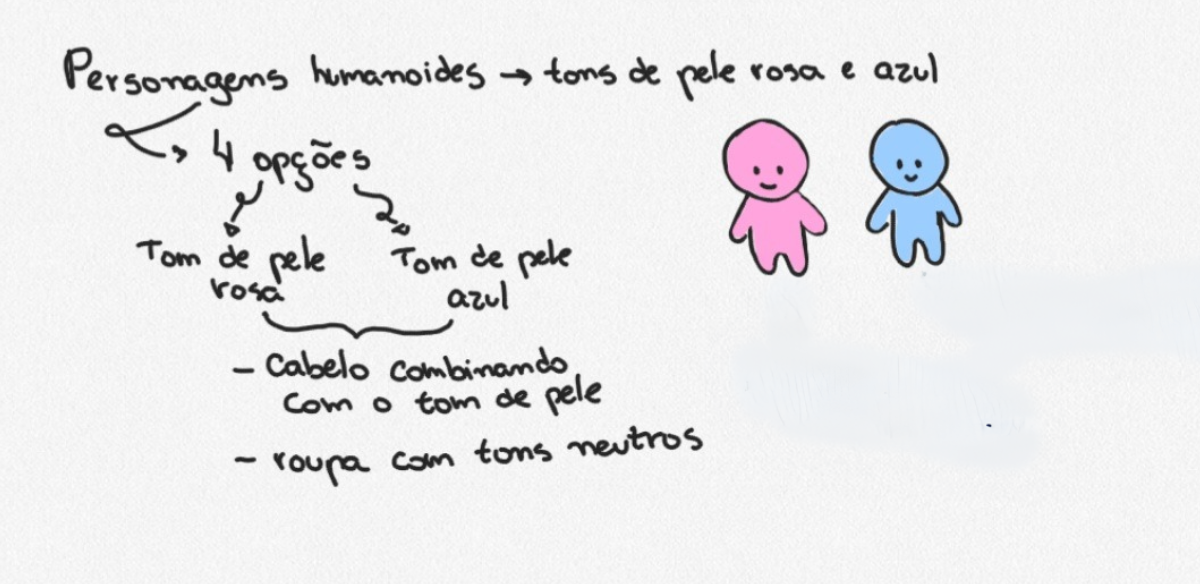 Personagens humanoides → tons de pele rosa e azul
4 opções
Tom de pele rosa
Tom de pele azul
- Cabelo combinando
com o tom de pele
- roupa com tons neutros